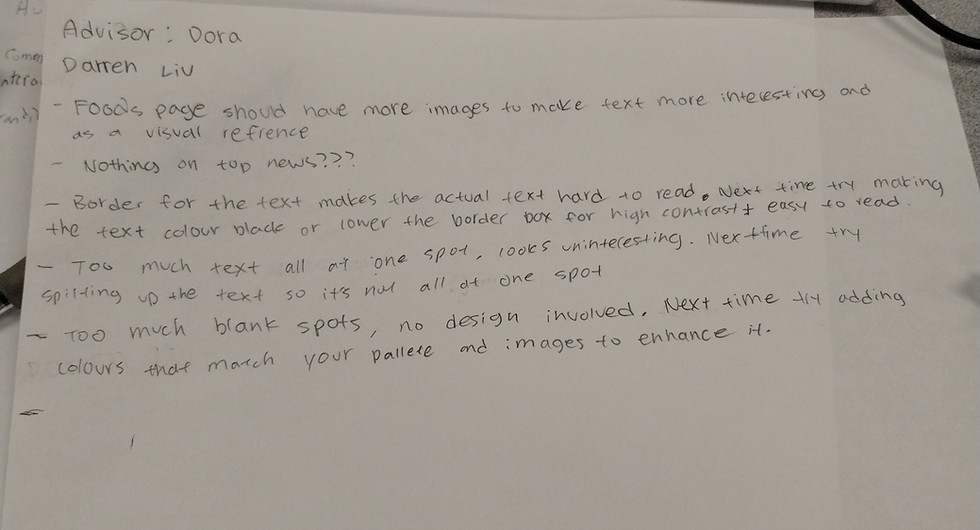 Advisor: Dora
Darren Liu
- Foods page should have more images to make text more interesting and
as a visual refrence
- Nothing on top news???
- Border for the text makes the actual text hard to read. Next time try making
the text colour black or lower the border box for high contrast + easy to read.
- Too much text all at one spot, looks uninteresting. Next time try
spilting up the text so it's not all at one spot
- Too much blank spots, no design involved. Next time try adding
colours that match your pallete and images to enhance it.
-